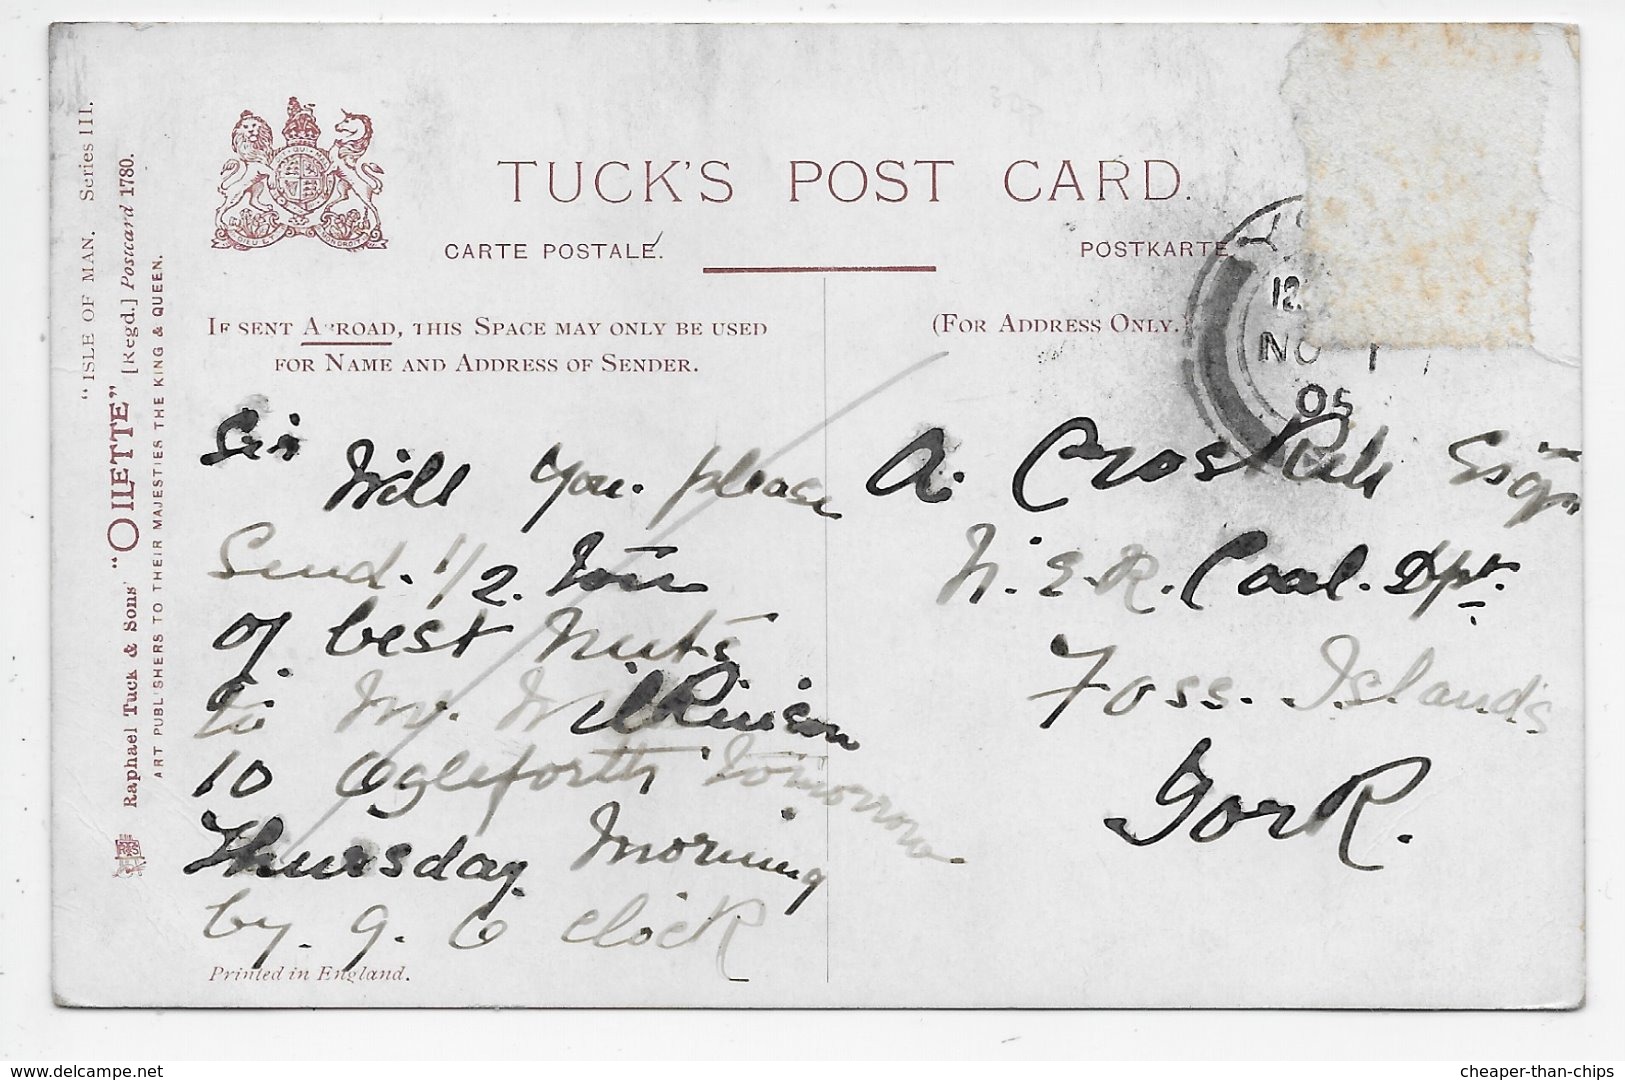 "ISLE OF MAN. Series III.
Raphael Tuck & Sons' "OILETTE" [Regd.] Postcard 1780.
ART PUBLISHERS TO THEIR MAJESTIES THE KING & QUEEN.
TUCK'S POST CARD.
CARTE POSTALE.
POSTKARTE
IF SENT ABROAD, THIS SPACE MAY ONLY BE USED
FOR NAME AND ADDRESS OF SENDER.
(FOR ADDRESS ONLY.)
12
NO 1
05
Sir
Will you. please
Send. 1/2. Ton
of. best Nuts
to Mr. Wilkinson
10 Ogleforth tomorrow.
Thursday. Morning
by. 9. O clock
A.
N.E.R. Coal. Dpt.
Foss. Islands
York.
Printed in England.
www.delcampe.net
cheaper-than-chips